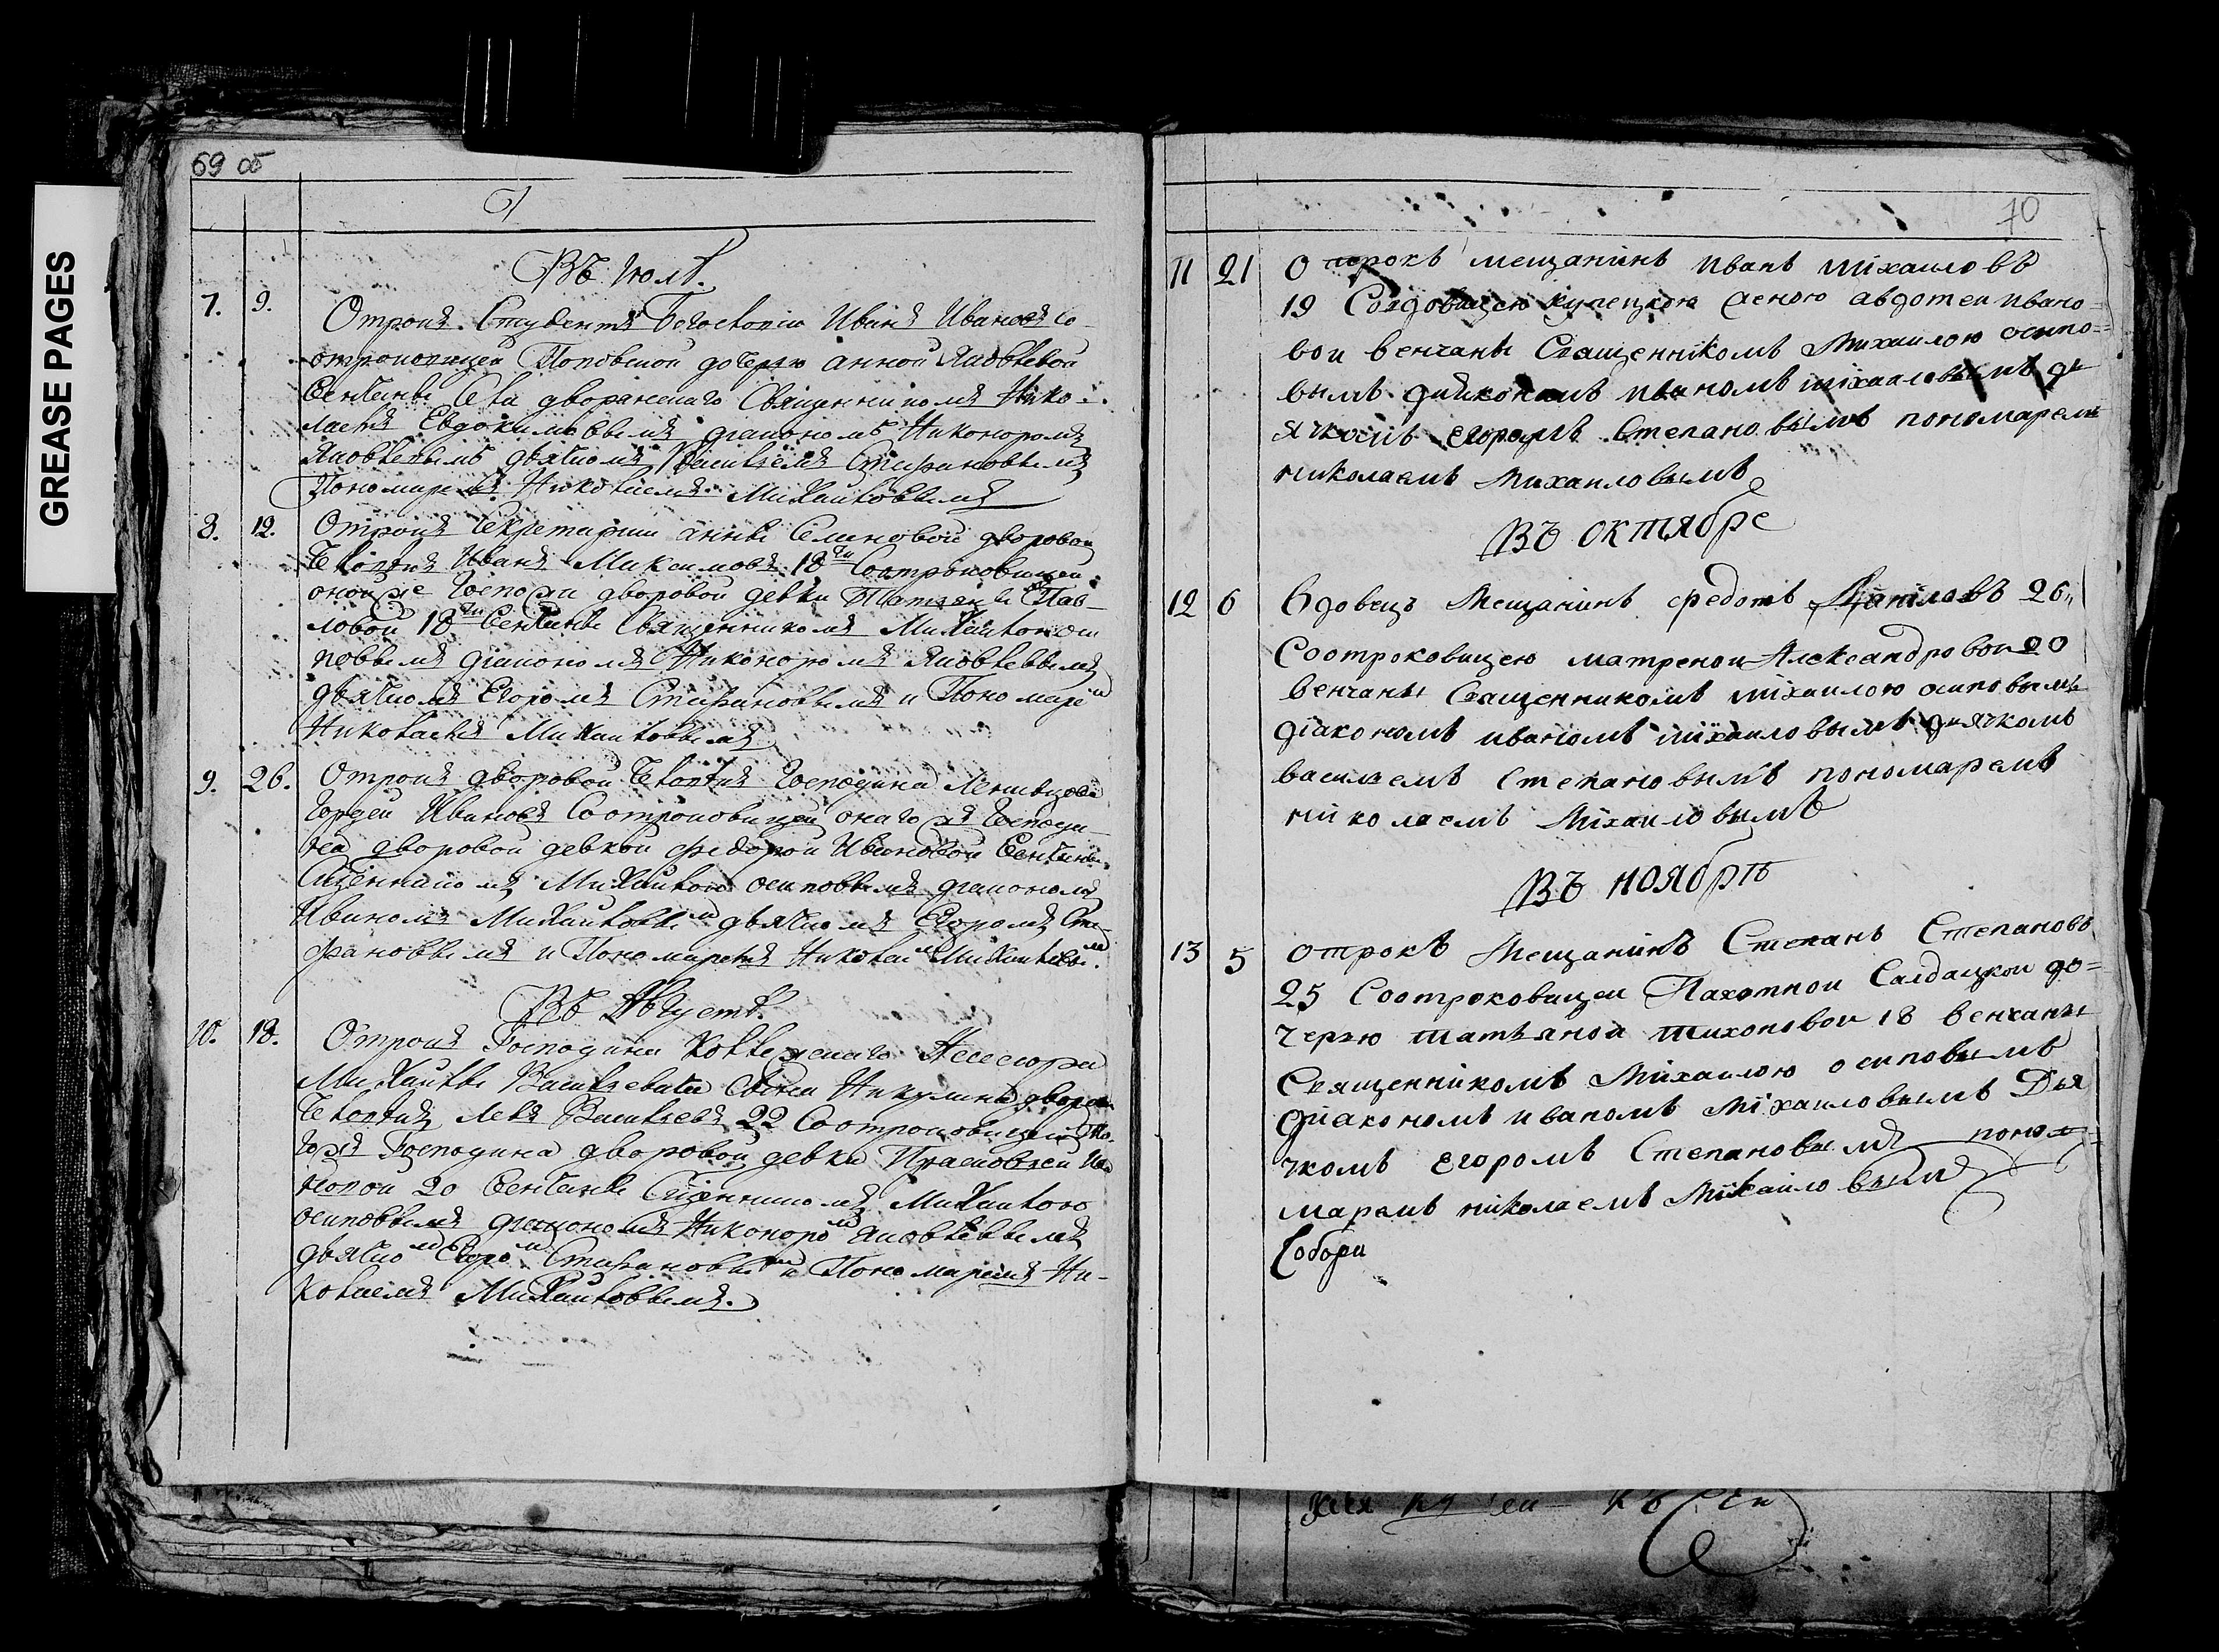 GREASE PAGES
69 об
Въ Июлѣ.
7. 9. Отрокъ Студентъ Богословіи Иванъ Ивановъ со
отроковицей Поповской дочерью Анной Яковлевой
венчаны Села дворянскаго Священникомъ Нико-
лаемъ Евдокимовымъ діакономъ Никоноромъ
Яковлевымъ дьячкомъ Василіемъ Стефановымъ
Пономаремъ Николаемъ Михайловымъ
8. 12. Отрокъ Секретарши анны Семеновой дворовой
человекъ Иванъ Максимовъ 18 ти Соотроковицей
оной же Госпожи дворовой девки Татьяны Пав-
ловой 18 ти венчаны Священникомъ Михайлою оси
повымъ діакономъ Никоноромъ Яковлевымъ
дьячкомъ Егоромъ Стефановымъ и Пономаре м
Николаемъ Михайловымъ
9. 26. Отрокъ дворовой человекъ Господина
Гордей Ивановъ Соотроковицей онаго жъ Господи-
на дворовой девкой федорой Ивановой венчаны
Сщенникомъ Михайлою осиповымъ діакономъ
Иваномъ Михайловы м дьячкомъ Егоромъ Сте-
фановымъ и Пономаремъ Николае м Михайловы м.
Въ Августѣ.
10. 18. Отрокъ Господина Коллежскаго Асессора
Михайлы Васильевича сына Никулина дворов
человекъ Левъ Васильевъ 22 Соотроковицей то
гожъ Господина дворовой девки Прасковьей
20 венчаны Сщенникомъ Михайлою
осиповымъ діакономъ Никоноро м Яковлевымъ
дьячко м Егоро м Стефановы м и Пономаремъ Ни-
колаемъ Михайловымъ.
70
11 21 Отрокъ мещанинъ иванъ міхаиловъ
19 Совдовицею купецкою женою авдотеи ивано=
вои венчаны Священнікомъ Михаилою осипо=
вымъ діикономъ иваномъ міхаиловымъ дь
ячкомъ егоромъ Степановымъ пономаремъ
николаемъ Михаиловымъ
Въ октябре
12 6 Вдовецъ Мещанинъ федотъ Даниловъ 26,,
Соотроковицею матренои Александровои 20
венчаны Священникомъ міхаилою осиповымъ
діакономъ иваномъ міхаиловымъ дьячкомъ
василиемъ Степановымъ пономаремъ
николаемъ Міхаиловымъ
Въ ноябрѣ
13 5 отрокъ Мещанинъ Степанъ Степановъ
25 Соотроковицеи Пахотнои Салдацкои до=
черью татьянои тихоновои 18 венчаны
Священникомъ Михаилою осиповымъ
діакономъ иваномъ Міхаиловымъ Дья
чкомъ егоромъ Степановымъ поно=
маремъ николаемъ Михаиловымъ
Собора